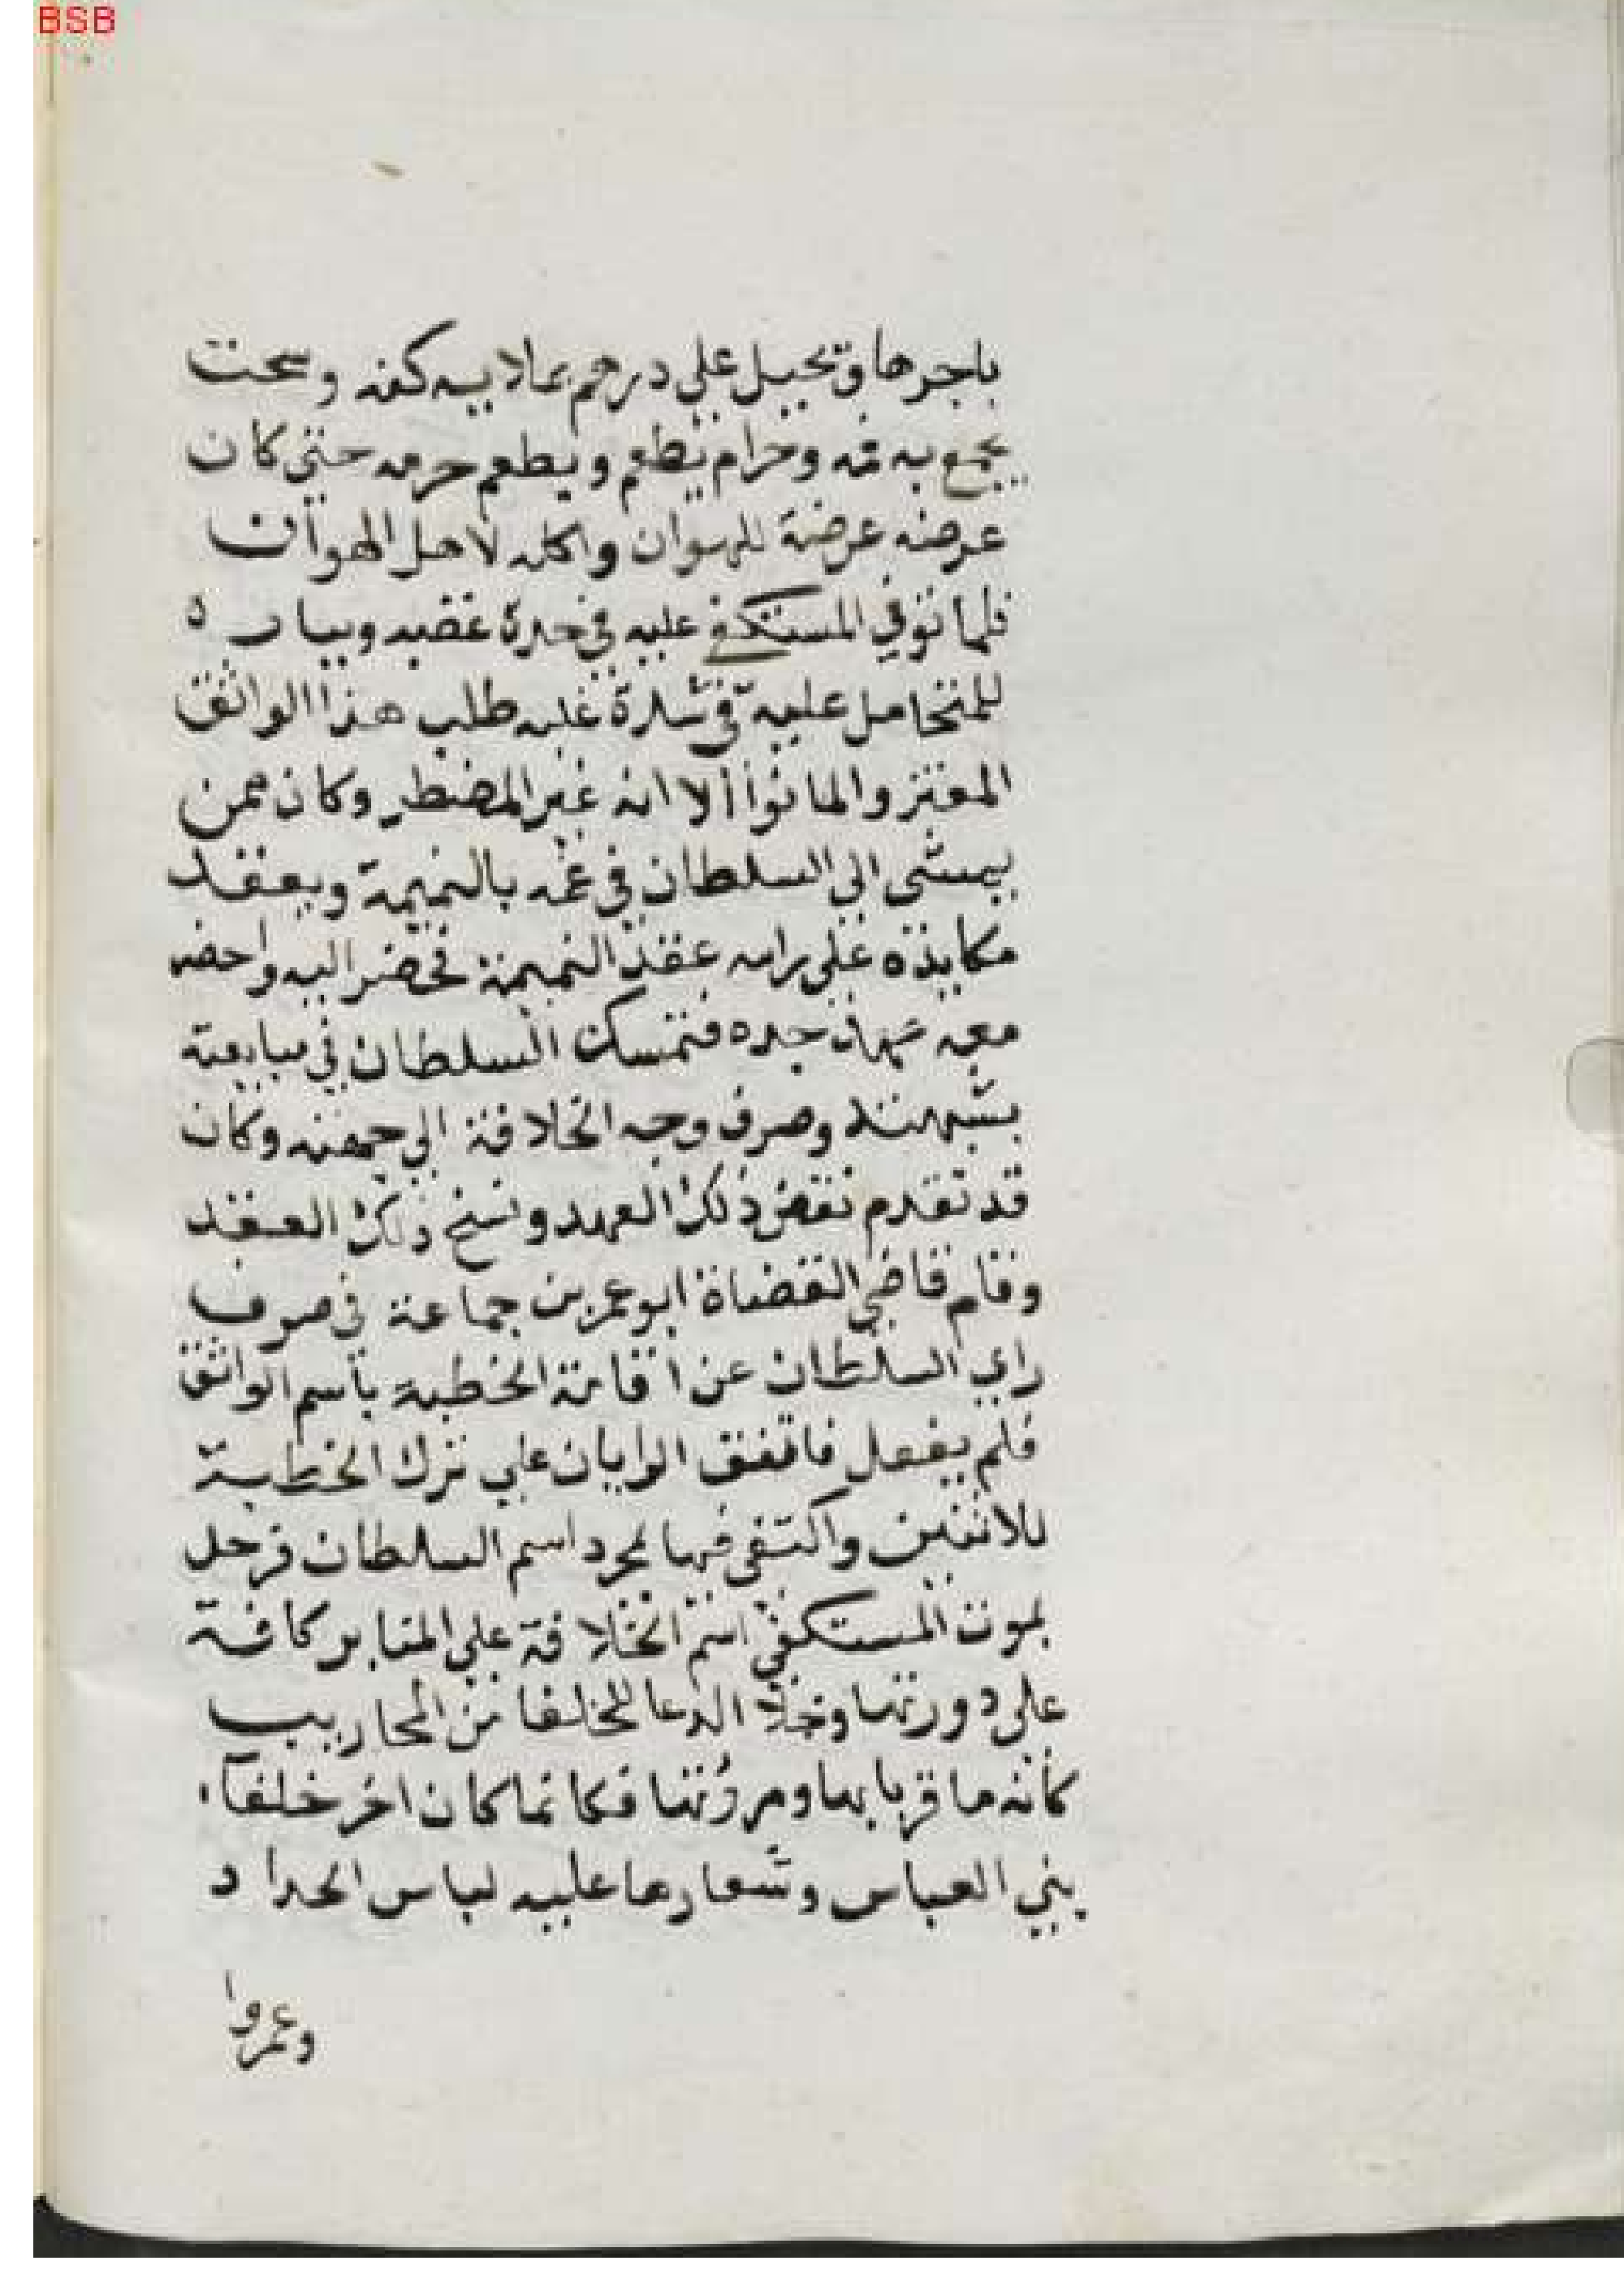 BSB
باجرها وتحيل على درهم يملا به كفه وسحت
يجمع به فمه وحرام يطعم ويطعم حرمه حتى كان
عرضه عرضة للهوان واكله لاهل الهوان
فلما توفي المستكفي عليه في حدة غضبه وتياره
للمتحامل عليه في شدة غلبه طلب هذا الواثق
المعتز والماثوا الا انه غير المضطر وكان ممن
يمشي الي السلطان في عمه بالنميمة ويعقد
مكايدة علي راسه عقد التميمة فحضر اليه واحضر
معه عهد جده فتمسك السلطان في مبايعته
بشبهته وصرف وجه الخلافة الي جهته وكان
قد تقدم نقض ذلك العهد ونسخ ذلك العقد
وقام قاضي القضاة ابو عمر بن جماعة في صرف
راي السلطان عن اقامة الخطبة باسم الواثق
فلم يفعل فاتفق الرايان علي ترك الخطبة
للاثنين واكتفي فيها بمجرد اسم السلطان فرحل
بموت المستكفي اسم الخلافة علي المنابر كافة
علي دورتها وخلا الدعا للخلفا من المحاريب
كأنه ما قرع بابها ومروتها فكانما كان اخر خلفاء
بني العباس وشعارها عليه لباس الحداد
وعمروا